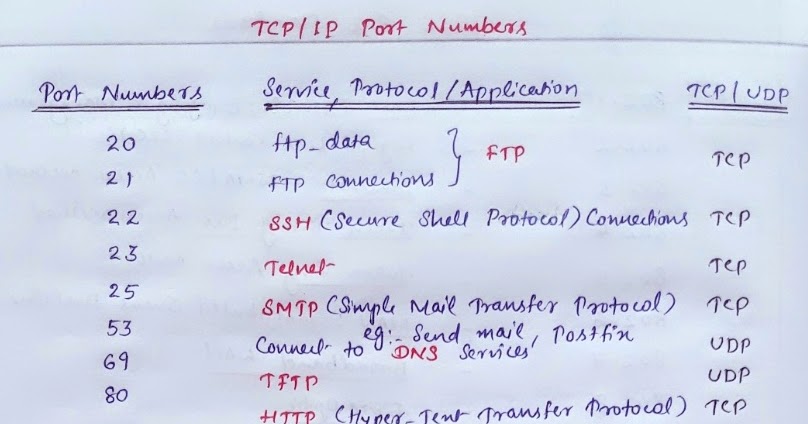 TCP/IP Port Numbers
Port Numbers Service, Protocol/Application TCP/UDP
20 ftp_data
FTP TCP
21 FTP Connections
22 SSH (Secure Shell Protocol) Connections TCP
23 Telnet TCP
25 SMTP (Simple Mail Transfer Protocol) TCP
eg:- Send mail, Postfix
53 Connect to DNS Services UDP
69 TFTP UDP
80 HTTP (Hyper-Text Transfer Protocol) TCP